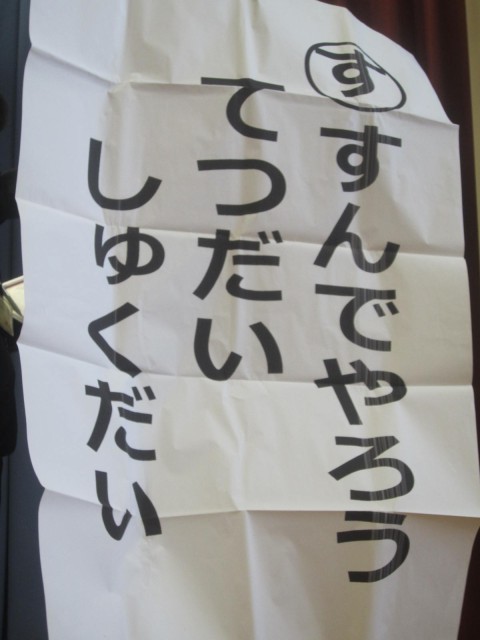 す すんでやろう
てつだい
しゅくだい